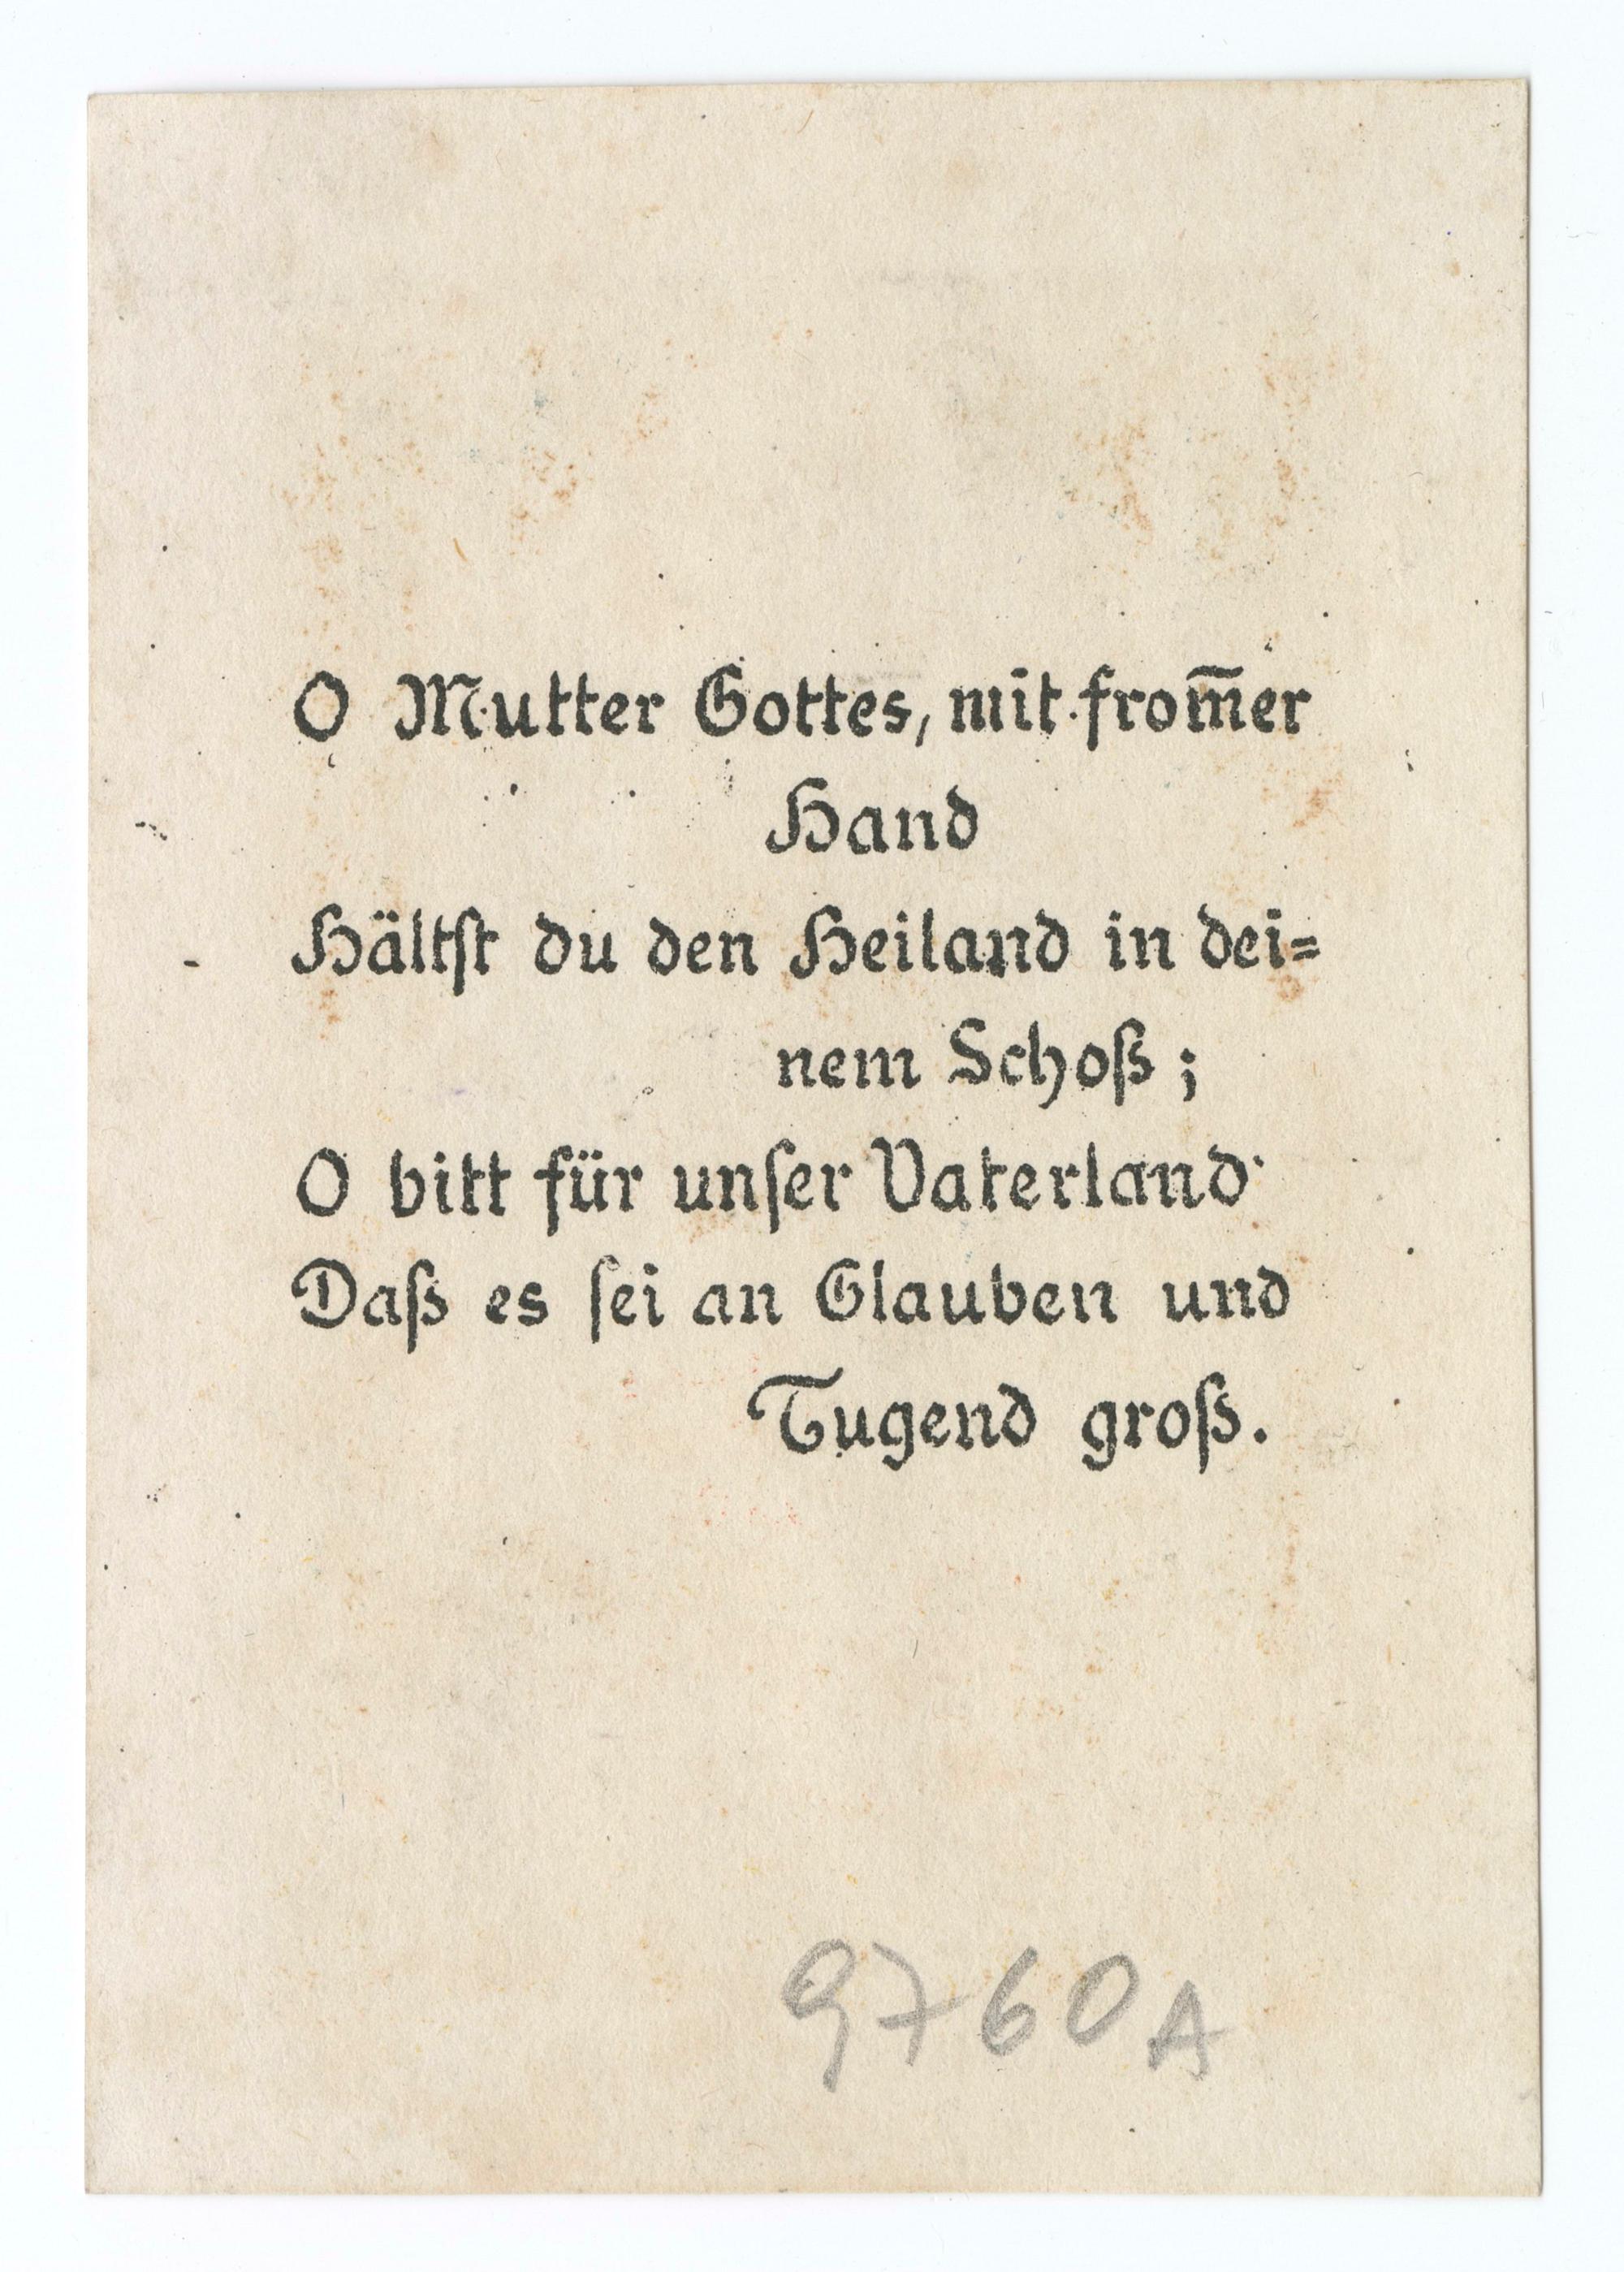 O Mutter Gottes, mit from̅er
Hand
Hältſt du den Heiland in dei=
nem Schoß;
O bitt für unſer Vaterland
Daß es ſei an Glauben und
Tugend groß.
9760A